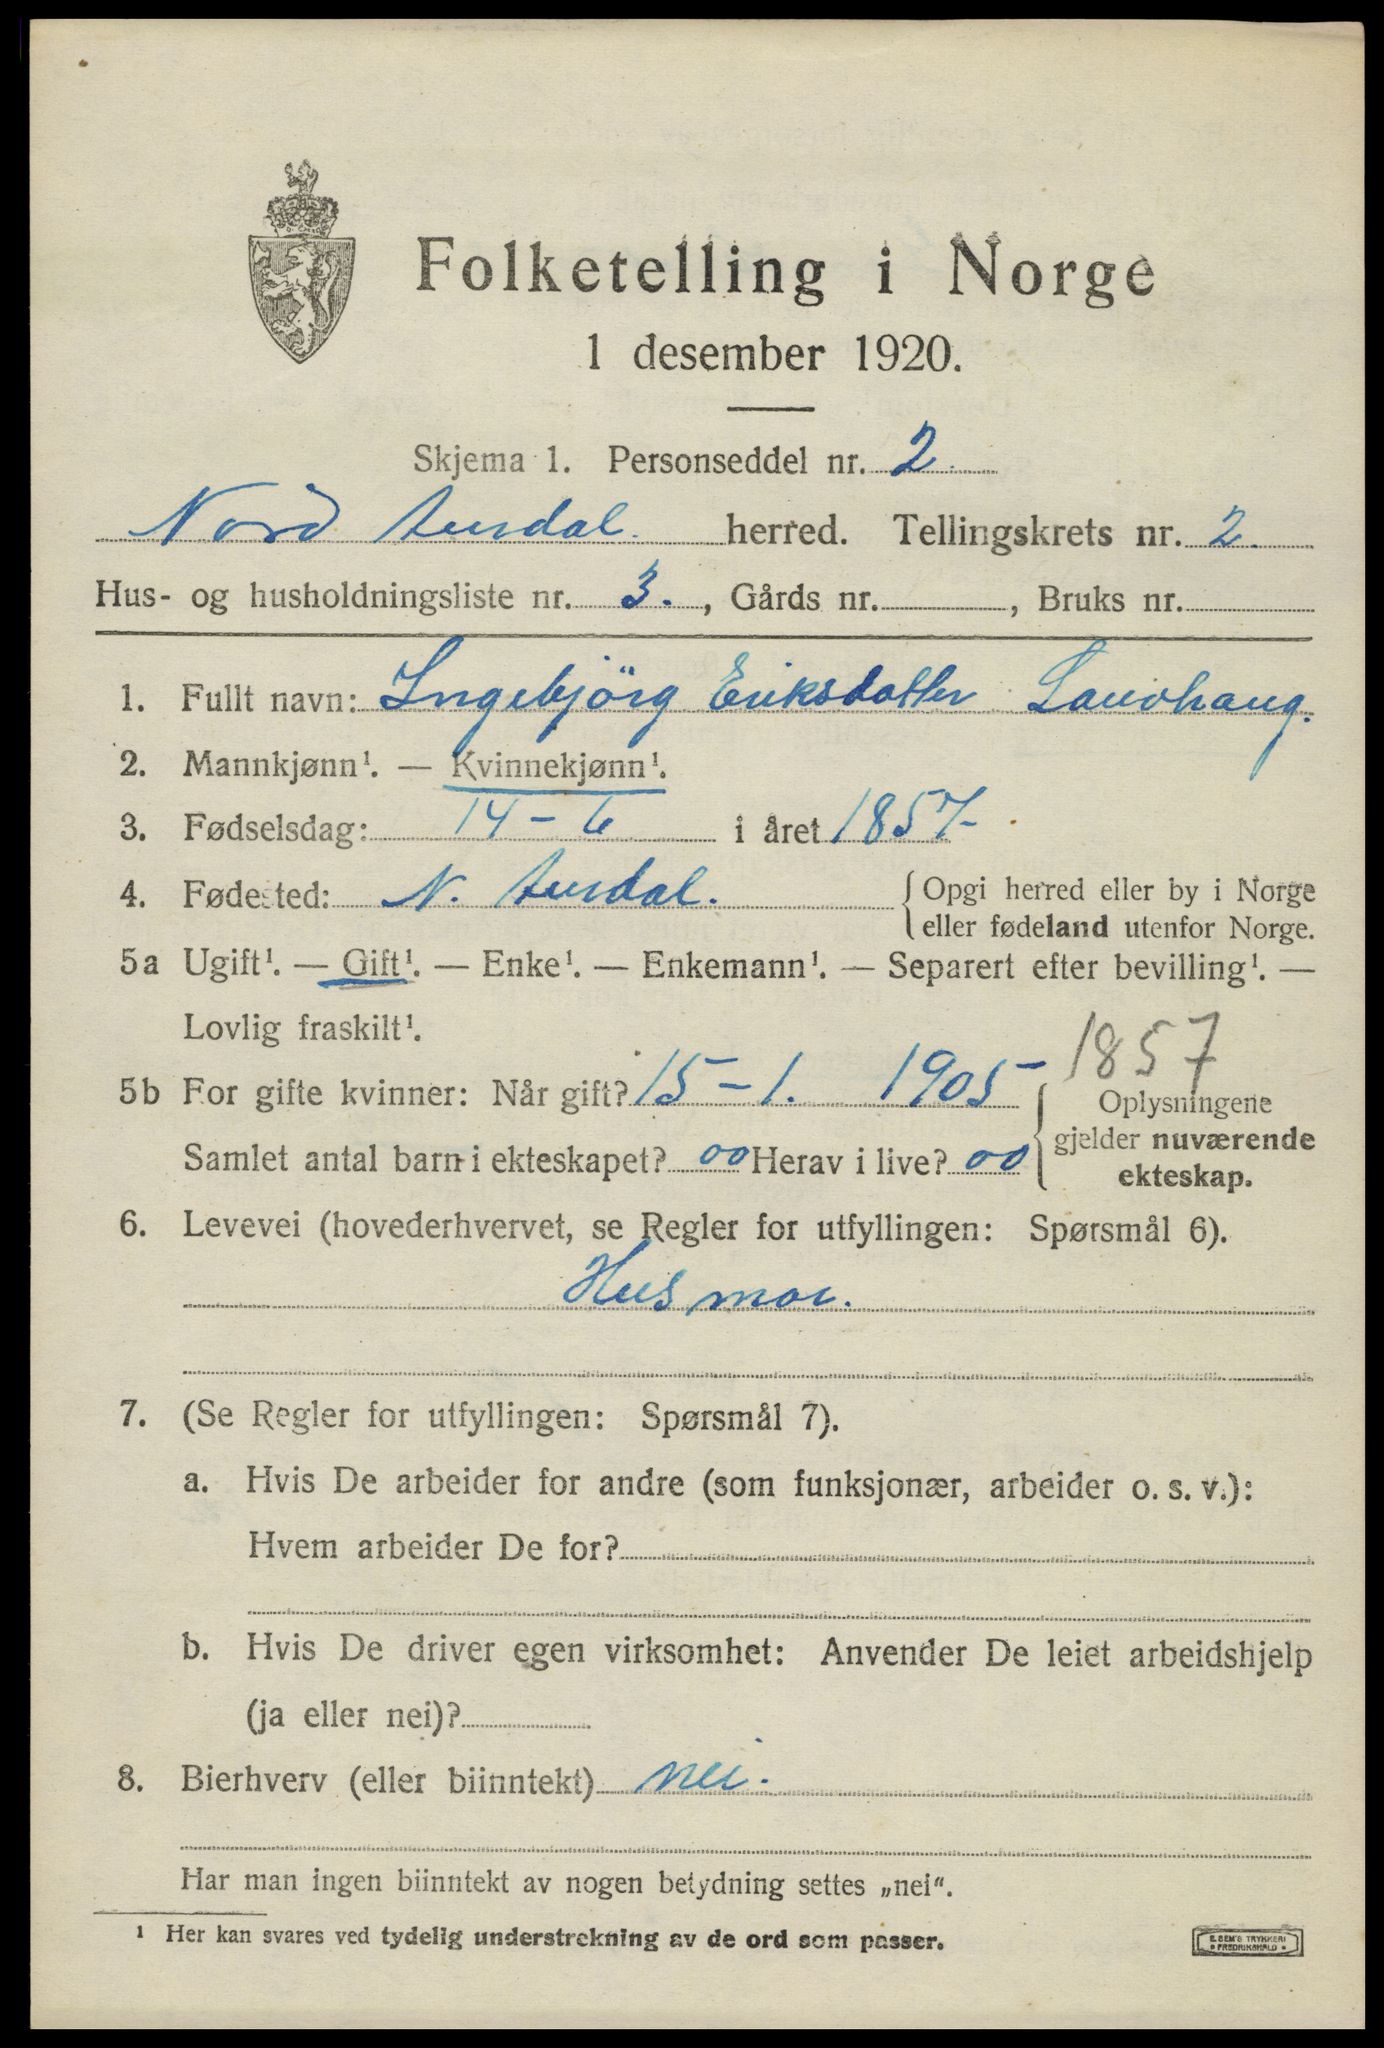 Folketelling i Norge
1 desember 1920.
Skjema 1. Personseddel nr. 2.
Nord Aurdal. herred. Tellingskrets nr. 2.
Hus- og husholdningsliste nr. 3., Gårds nr. , Bruks nr.
1. Fullt navn: Ingebjörg Eriksdatter Lauvhaug.
2. Mannkjønn¹. — Kvinnekjønn¹.
3. Fødselsdag: 14 - 6 i året 1857-
4. Fødested: N. Aurdal. {Opgi herred eller by i Norge
eller fødeland utenfor Norge.
5a Ugift¹. — Gift¹. — Enke¹. — Enkemann¹. — Separert efter bevilling¹. —
Lovlig fraskilt¹.
1857
5b For gifte kvinner: Når gift? 15 - 1. 1905-
Samlet antal barn i ekteskapet? 00 Herav i live? 00
Oplysningene
gjelder nuværende
ekteskap.
6. Levevei (hovederhvervet, se Regler for utfyllingen: Spørsmål 6).
Husmor.
7. (Se Regler for utfyllingen: Spørsmål 7).
a. Hvis De arbeider for andre (som funksjonær, arbeider o. s. v.):
Hvem arbeider De for?
b. Hvis De driver egen virksomhet: Anvender De leiet arbeidshjelp
(ja eller nei)?
8. Bierhverv (eller biinntekt) nei.
Har man ingen biinntekt av nogen betydning settes „nei“.
¹ Her kan svares ved tydelig understrekning av de ord som passer.
E. SEM'S TRYKKERI
• FREDRIKSHALD •